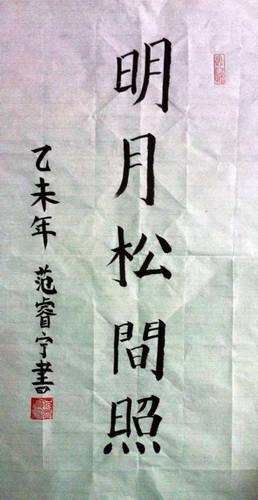 明月松間照
乙未年 范睿宁書